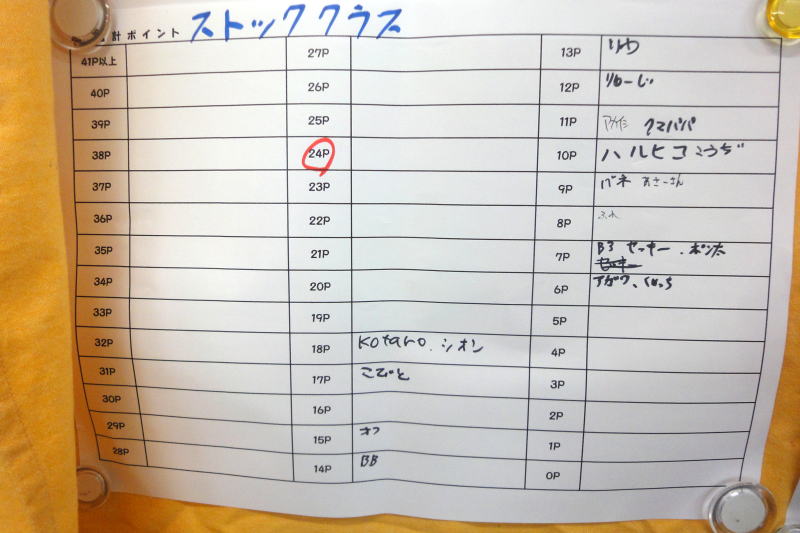 計ポイント ストッククラス
41P以上
40P
39P
38P
37P
36P
35P
34P
33P
32P
31P
30P
29P
28P
27P
26P
25P
24P
23P
22P
21P
20P
19P
18P Kotaro、シオン
17P こびと
16P
15P オフ
14P BB
13P りゅう
12P りゅーじ
11P クマパパ
10P ハルヒコ こうじ
9P バネ あさーさん
8P ふれ
7P B3 ゼッキー、ポンタ
6P アガワ、くめっち
5P
4P
3P
2P
1P
0P